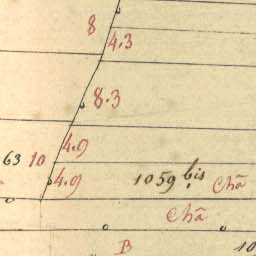 8
4.3
8.3
4.9
63 10
4.9
1059 bis
Chã
Chã
B
10